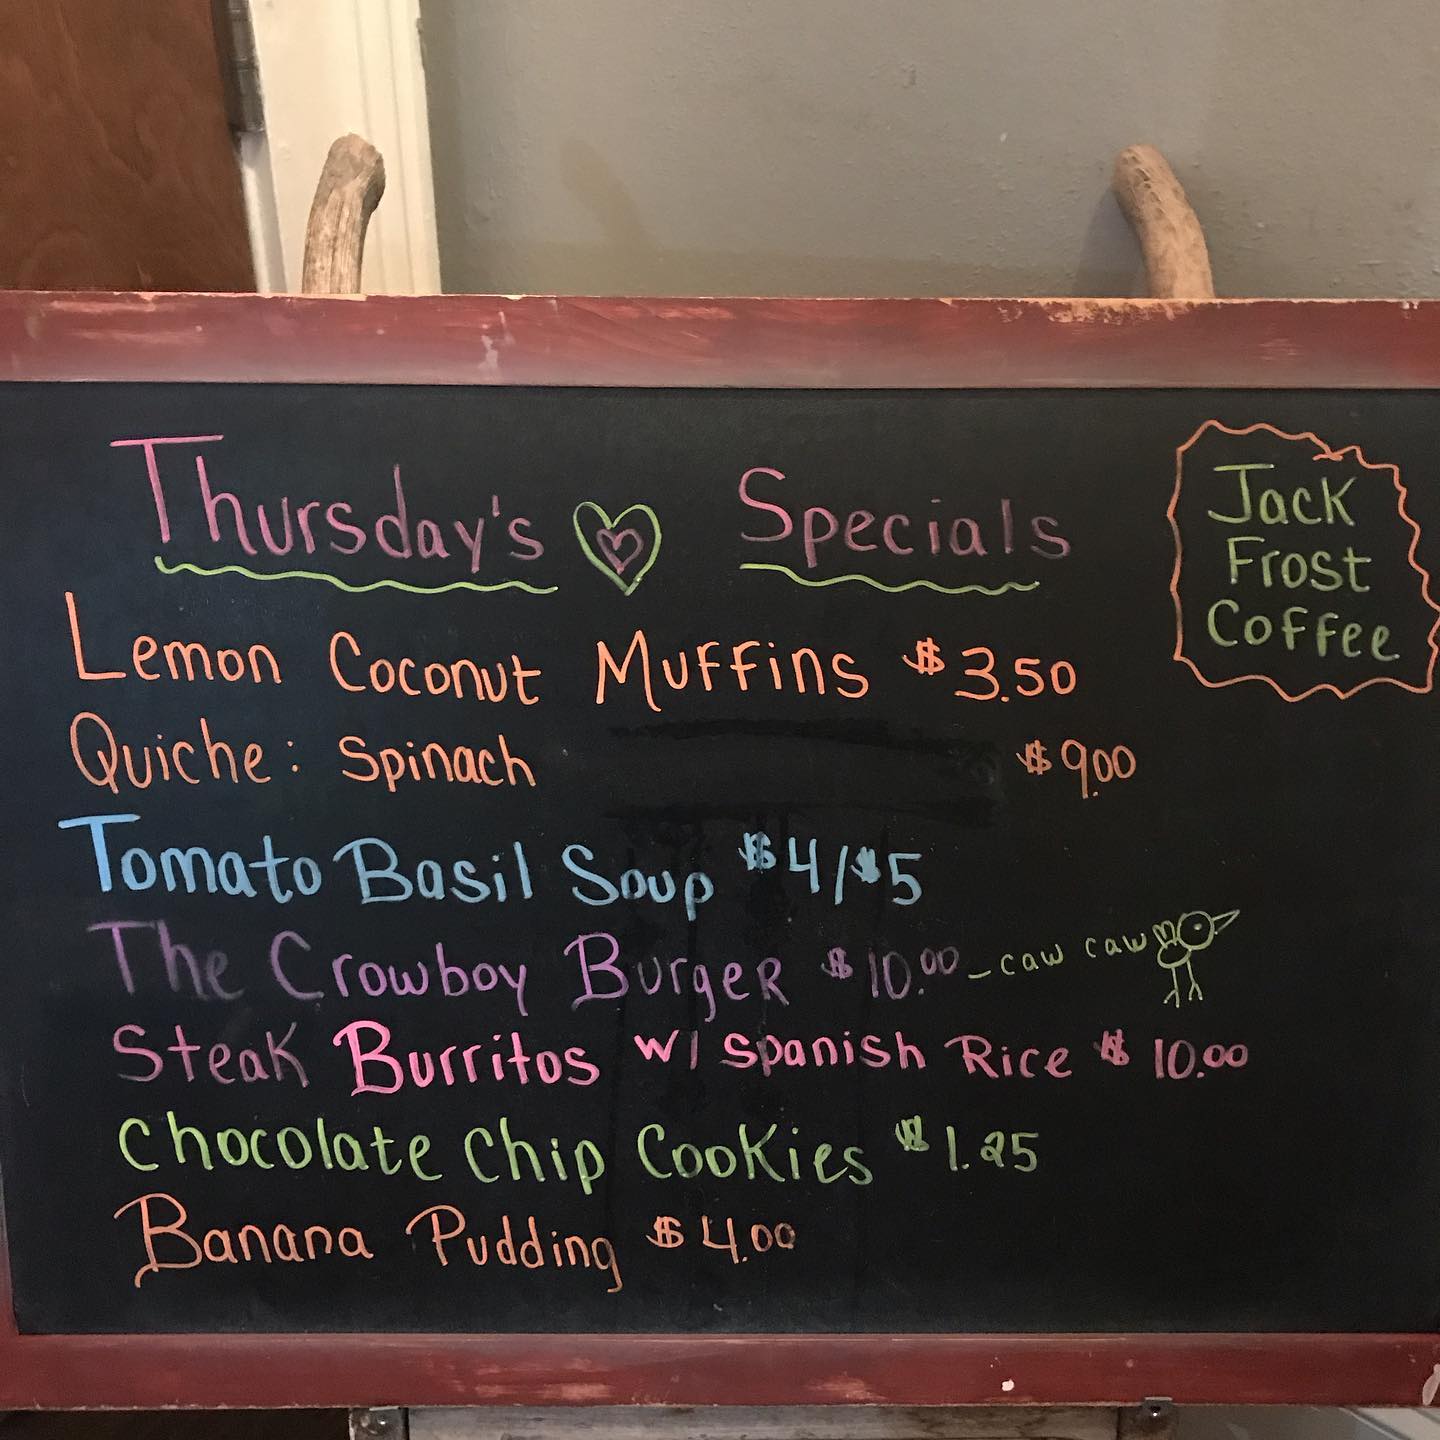 Thursday's Specials
Jack
Frost
Coffee
Lemon Coconut Muffins $3.50
Quiche: Spinach $9.00
Tomato Basil Soup $4/$5
The Crowboy Burger $10.00 - caw caw
Steak Burritos w/ Spanish Rice $10.00
Chocolate Chip Cookies $1.25
Banana Pudding $4.00